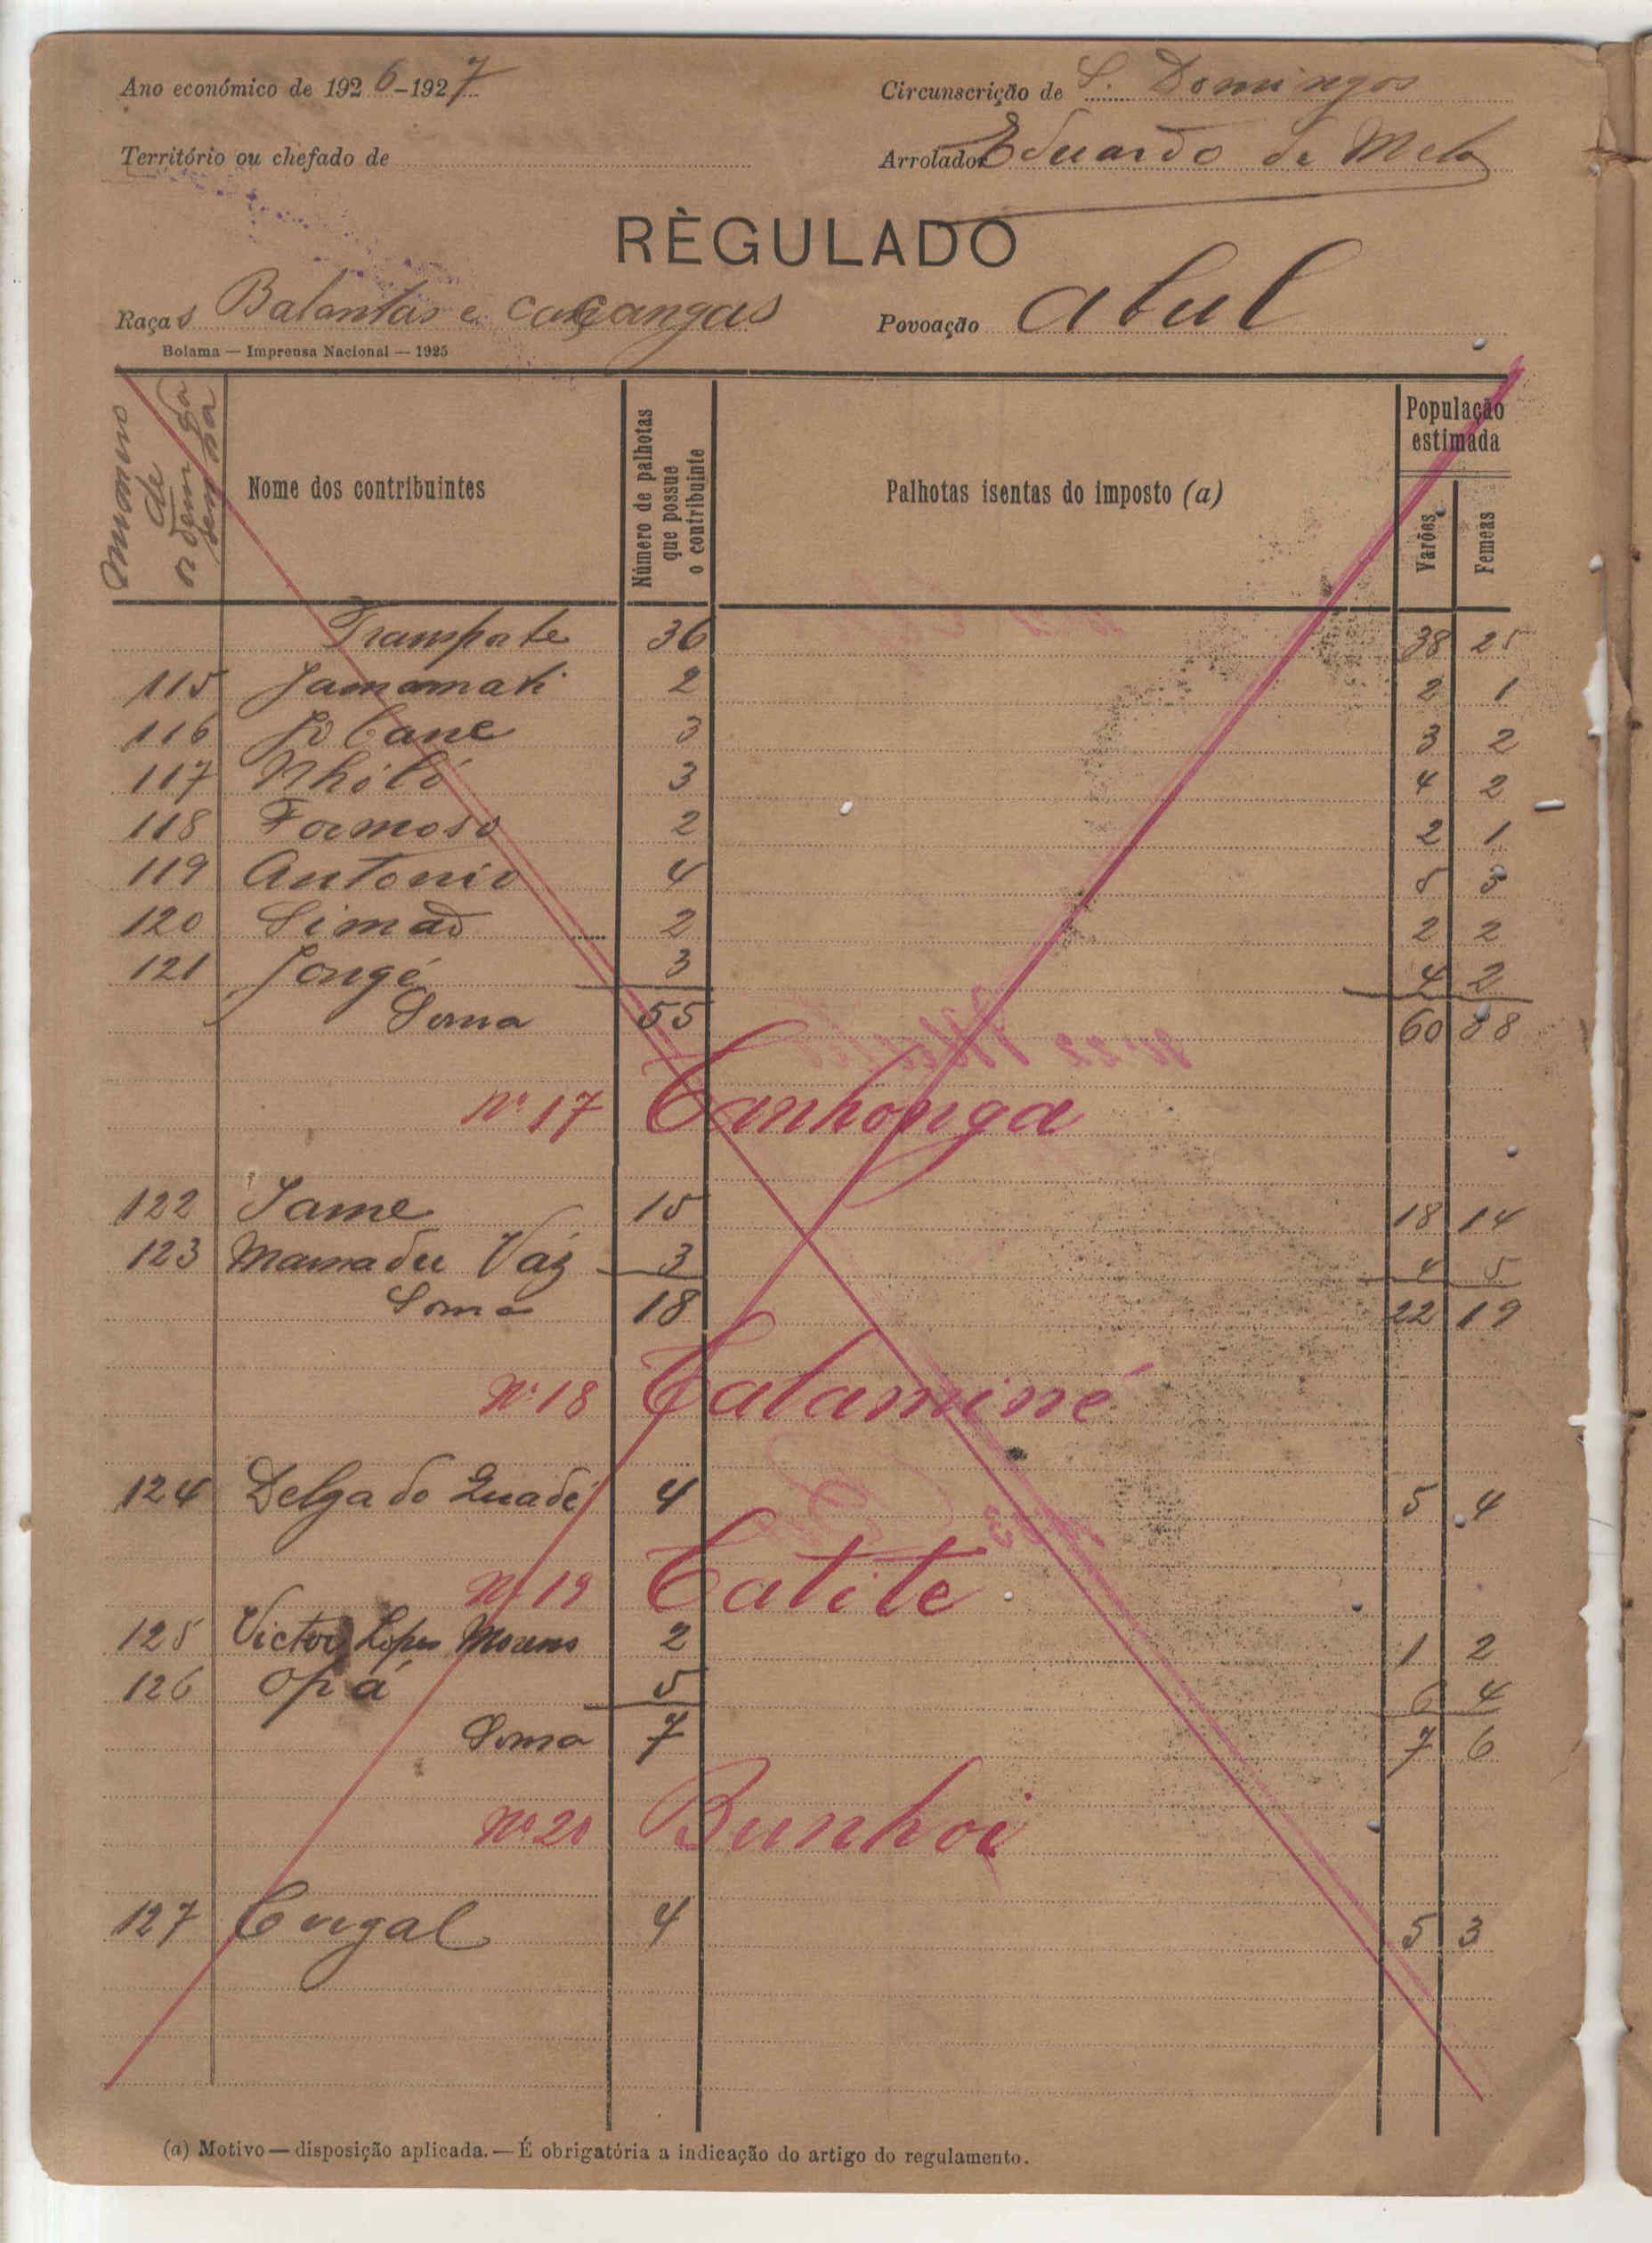 Ano económico de 1926-1927
Circunscrição de S. Domingos
Território ou chefado de
Arrolador Eduardo de Melo
RÈGULADO
Raças Balantas e Cassangas
Povoação Abul
Bolama — Imprensa Nacional — 1925
Numero de ordem da senha
Nome dos contribuintes
Número de palhotas que possue o contribuinte
Palhotas isentas do imposto (a)
População estimada
Varões
Femeas
Transporte 36 38 25
115 Jamamati 2 2 1
116 Jobane 3 3 2
117 Nhiló 3 4 2
118 Formoso 2 2 1
119 Antonio 4 5 3
120 Simão 2 2 2
121 Jongé 3 4 2
Soma 55 60 38
Nº 17 Canhonga
122 Jame 15 18 14
123 Mamadu Váz 3 4 5
Soma 18 22 19
Nº 18 Cataminé
124 Delgado Quadé 4 5 4
Nº 19 Catite
125 Victor Lopes Moreno 2 1 2
126 Opá 5 6 4
Soma 7 7 6
Nº 20 Bunhoi
127 Cugal 4 5 3
(a) Motivo — disposição aplicada. — É obrigatória a indicação do artigo do regulamento.